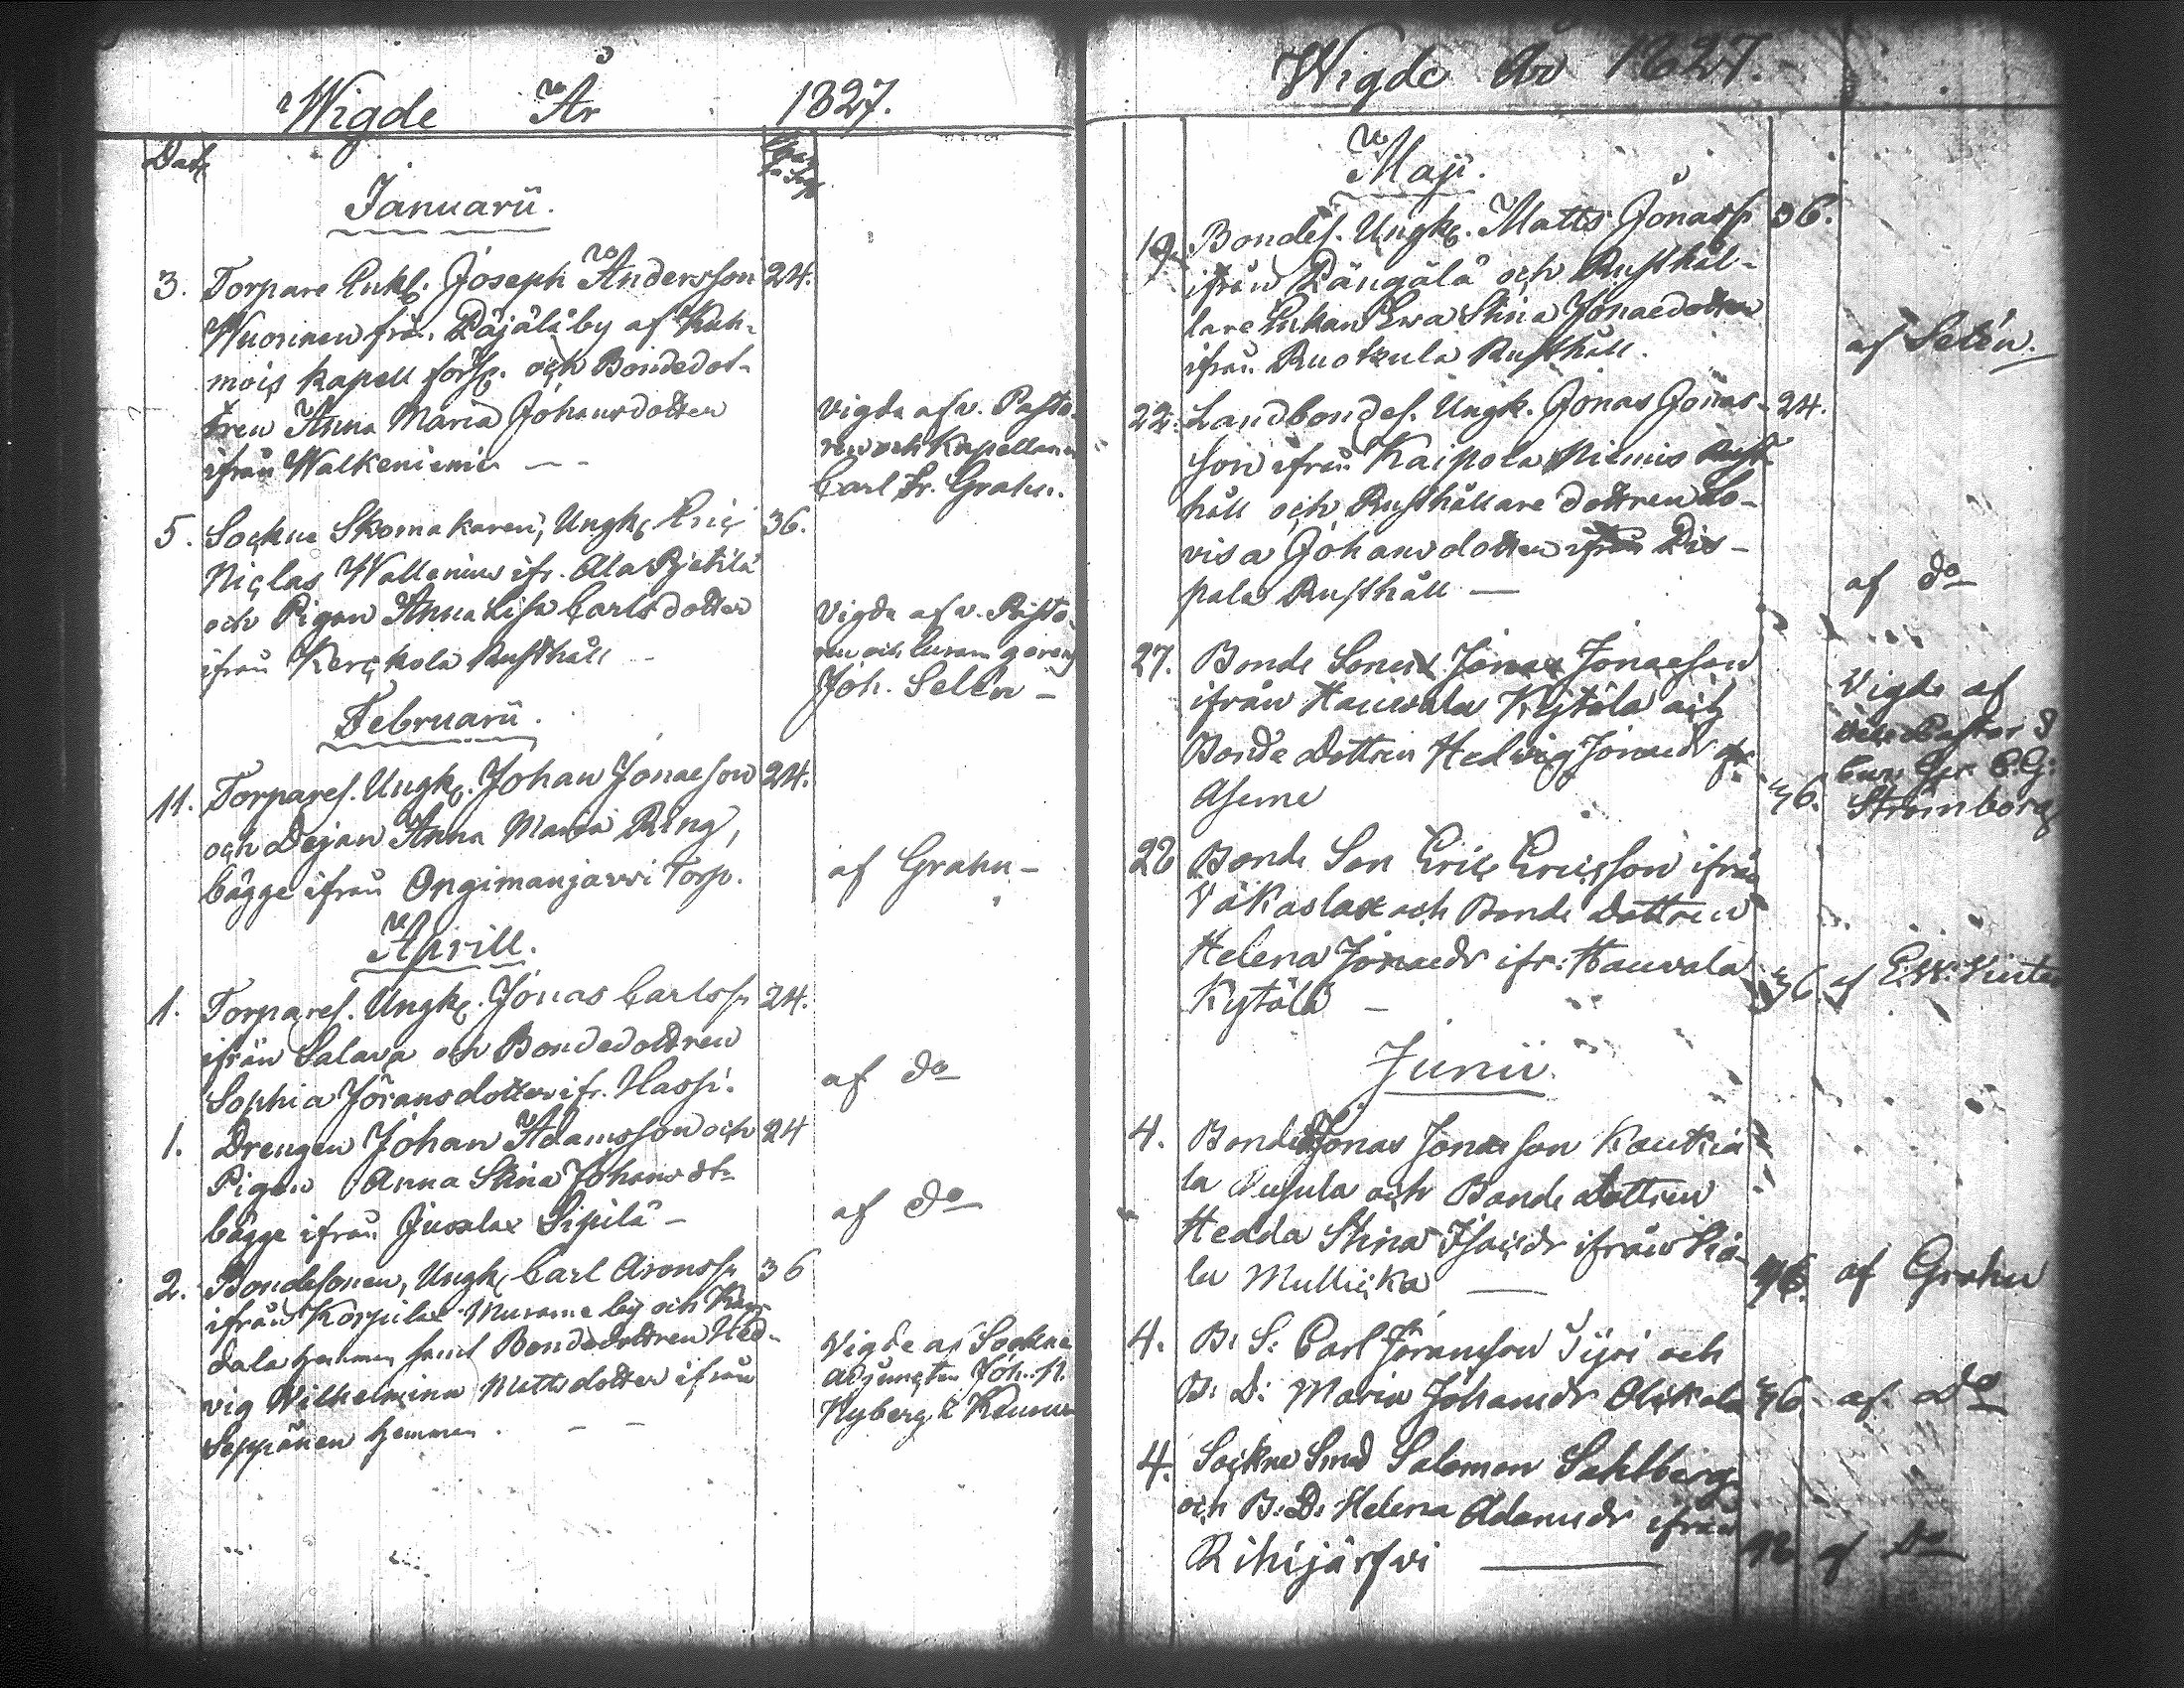 Wigde År 1827.
Dat.
Januarii.
3. Torpare Enkl. Joseph Andersson 24.
Wuorinen från Päjälä by af Kuh-
mois kapell förs. och Bondedot-
tren Anna Maria Johansdotter
ifrån Walkeniemi — -
Vigde af v. Pasto-
ren och Kapellanen
Carl Fr. Grahn.
5. Sockne Skomakaren, Ungk. Eric 36.
Niclas Wallenius ifr. Ala Pietilä
och Pigan Anna Lisa Carlsdotter
ifrån Kerckola Rusthåll -
Vigde af v. Pasto-
ren och
Joh. Selén -
Februarii.
11. Torpares. Ungk. Johan Jonasson 24.
och Dejan Anna Maria Ring,
bägge ifrån Ongimanjarvi Torp.
af Grahn -
Aprill.
1. Torpares. Ungk. Jonas Carlss. 24.
ifrån Salava och Bondedottren
Sophia Jöransdotter ifr. Hassi.
af do
1. Drengen Johan Adamsson och 24
Pigan Anna Stina Johansdtr
bägge ifrån Jusslax Sipilä -
af do
2. Bondesonen, Ungk. Carl Aronss. 36
ifrån Korpilax Murame by och
dala hemman samt Bondedottren Hed-
vig Wilhelmina Mattsdotter ifrån
Seppänen hemman. - -
Vigde af Sockne
Adjuncten Joh. H.
Nyberg i
Wigde År 1827.
Maji.
19. Bondes. Ungk. Matts Jonass. 36.
ifrån Pängälä och Rusthål-
lare Enkan Ewa Stina Jonaedotter
ifrån Ruotzula Rusthåll.
af Selén.
22. Landbondes. Ungk. Jonas Jonas- 24.
son ifrån Kaipola Niemis Rust-
håll och Rusthållare dottren Lo-
visa Johansdotter ifrån Dis-
pala Rusthåll —
af do
27. Bonde Sonen Jonas Jonaeson
ifrån Hauvala Kytölä och
Bonde Dottren Hedvig Jonaedr ifr.
Aseme 36.
Vigde af
Vice Pastor
C. G.
Strömborg
28 Bonde Son Eric Ericsson ifrån
Väkaslax och Bonde Dottren
Helena Jonaedr ifr: Hauvala
Kytölä - 36. af E. W.
Junii.
4. Jonas Jonaeson
la och Bonde Dottren
Hedda Stina Isacsdr ifrån
la Mullicka — 36. af Grahn
4. B: S: Carl Jöransson Tyri och
B: D: Maria Johansdr Olckola 36. af Do
4. Sockne Smed Salomon Sahlberg
och B: D: Helena Adamsdr ifrån
Rihijärfvi — 12 af Do